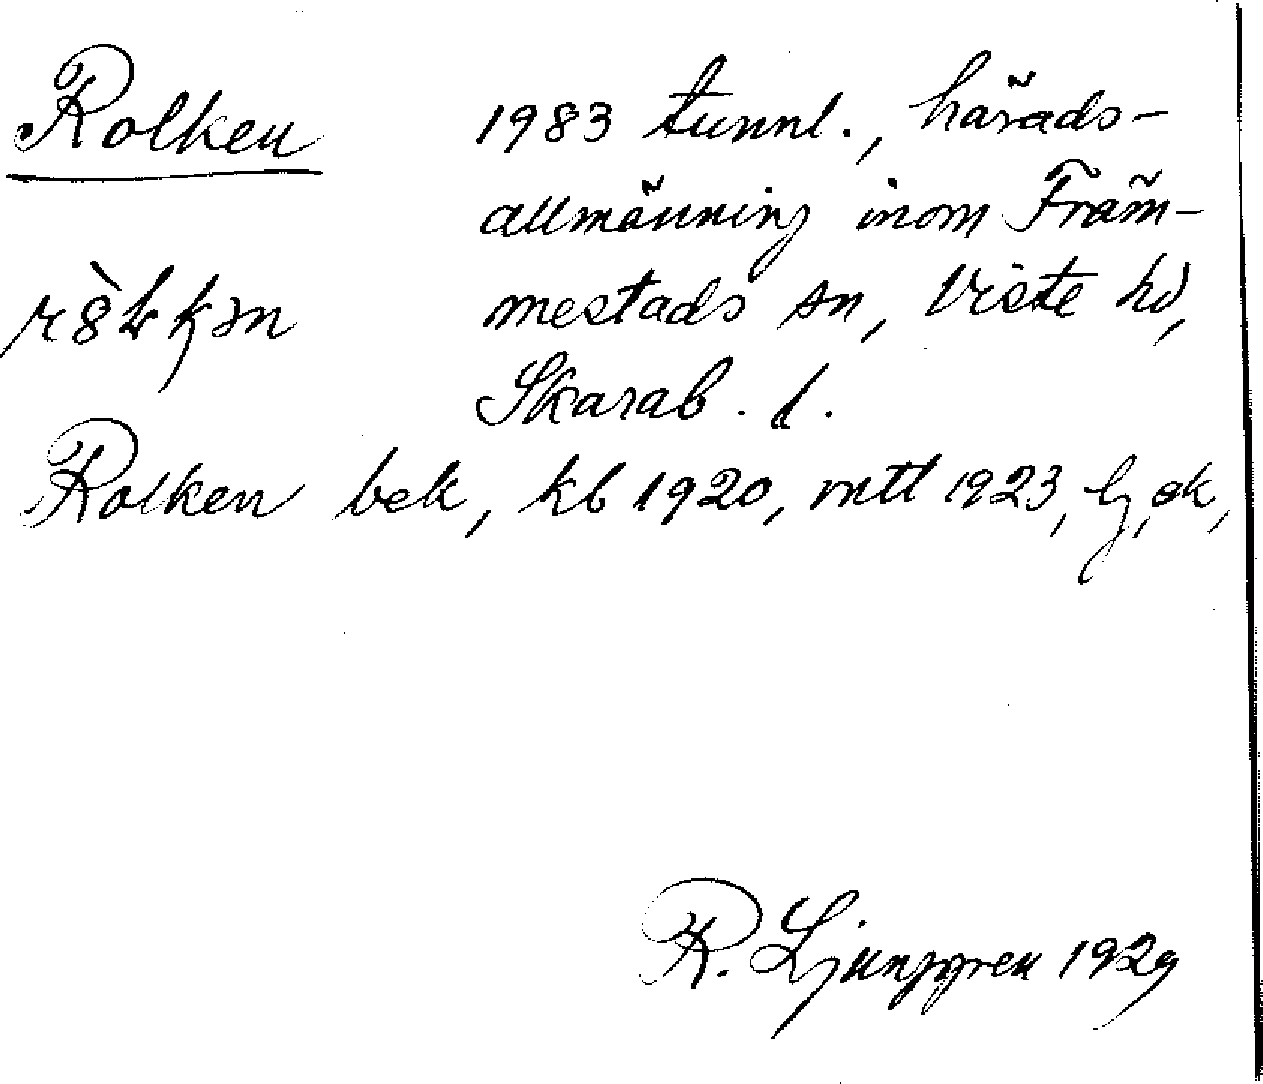 Rolken 1983 tunnl., härads-
allmänning inom Främ-
mestads sn, Viste hd,
Skarab. l.
Rolken bek, kb 1920, mtl 1923, lj, ek,
R. Ljunggren 1929